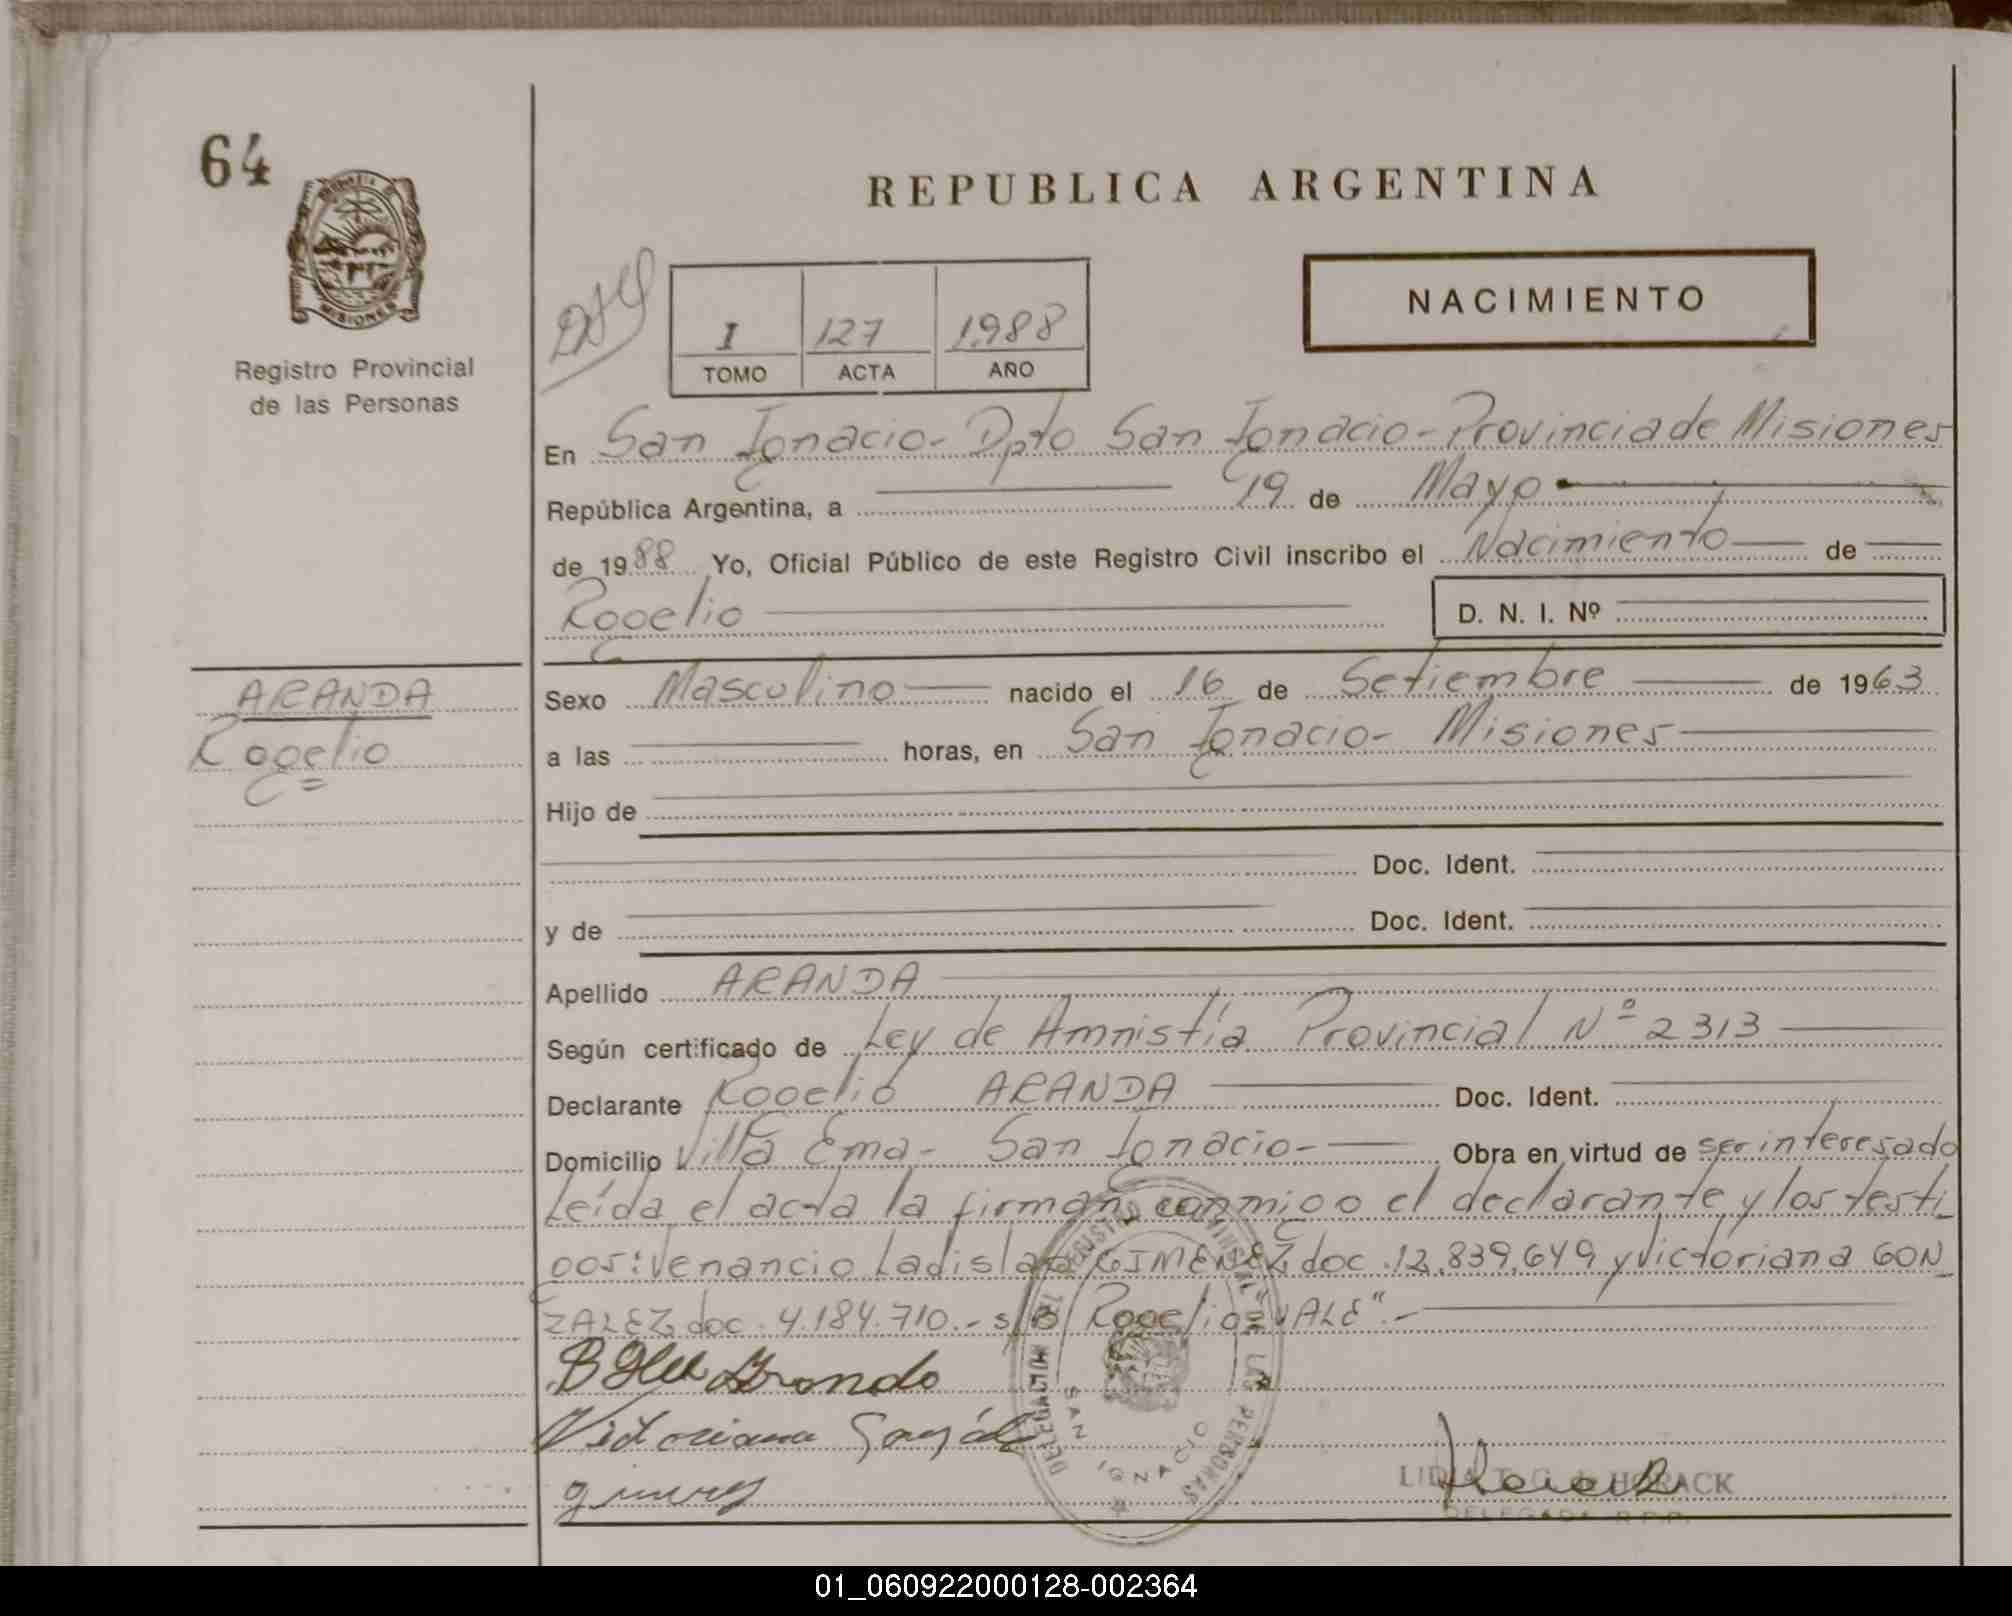 64
REPUBLICA ARGENTINA
NACIMIENTO
MISIONES
Registro Provincial
de las Personas
I 127 1988
TOMO ACTA AÑO
En San Ignacio- Dpto San Ignacio- Provincia de Misiones
República Argentina, a 19 de Mayo
de 1988 Yo, Oficial Público de este Registro Civil inscribo el Nacimiento de
Rogelio D. N. I. Nº
ARANDA
Rogelio
Sexo Masculino nacido el 16 de Setiembre de 1963
a las horas, en San Ignacio- Misiones
Hijo de
Doc. Ident.
y de Doc. Ident.
Apellido ARANDA
Según certificado de Ley de Amnistía Provincial Nº 2313
Declarante Rogelio ARANDA Doc. Ident.
Domicilio Villa Ema- San Ignacio- Obra en virtud de ser interesado
Leída el acta la firman conmigo el declarante y los testi_
gos: Venancio Ladislao GIMENEZ doc. 12.839.649 y Victoriana GON_
ZALEZ doc. 4.184.710.- s/B/ Rogelio "VALE".-
Victoriana
DELEGACION DEL REGISTRO PROVINCIAL DE LAS PERSONAS
SAN IGNACIO
LIDIA T. G. de HORACK
DELEGADA R.P.P.
01_060922000128-002364